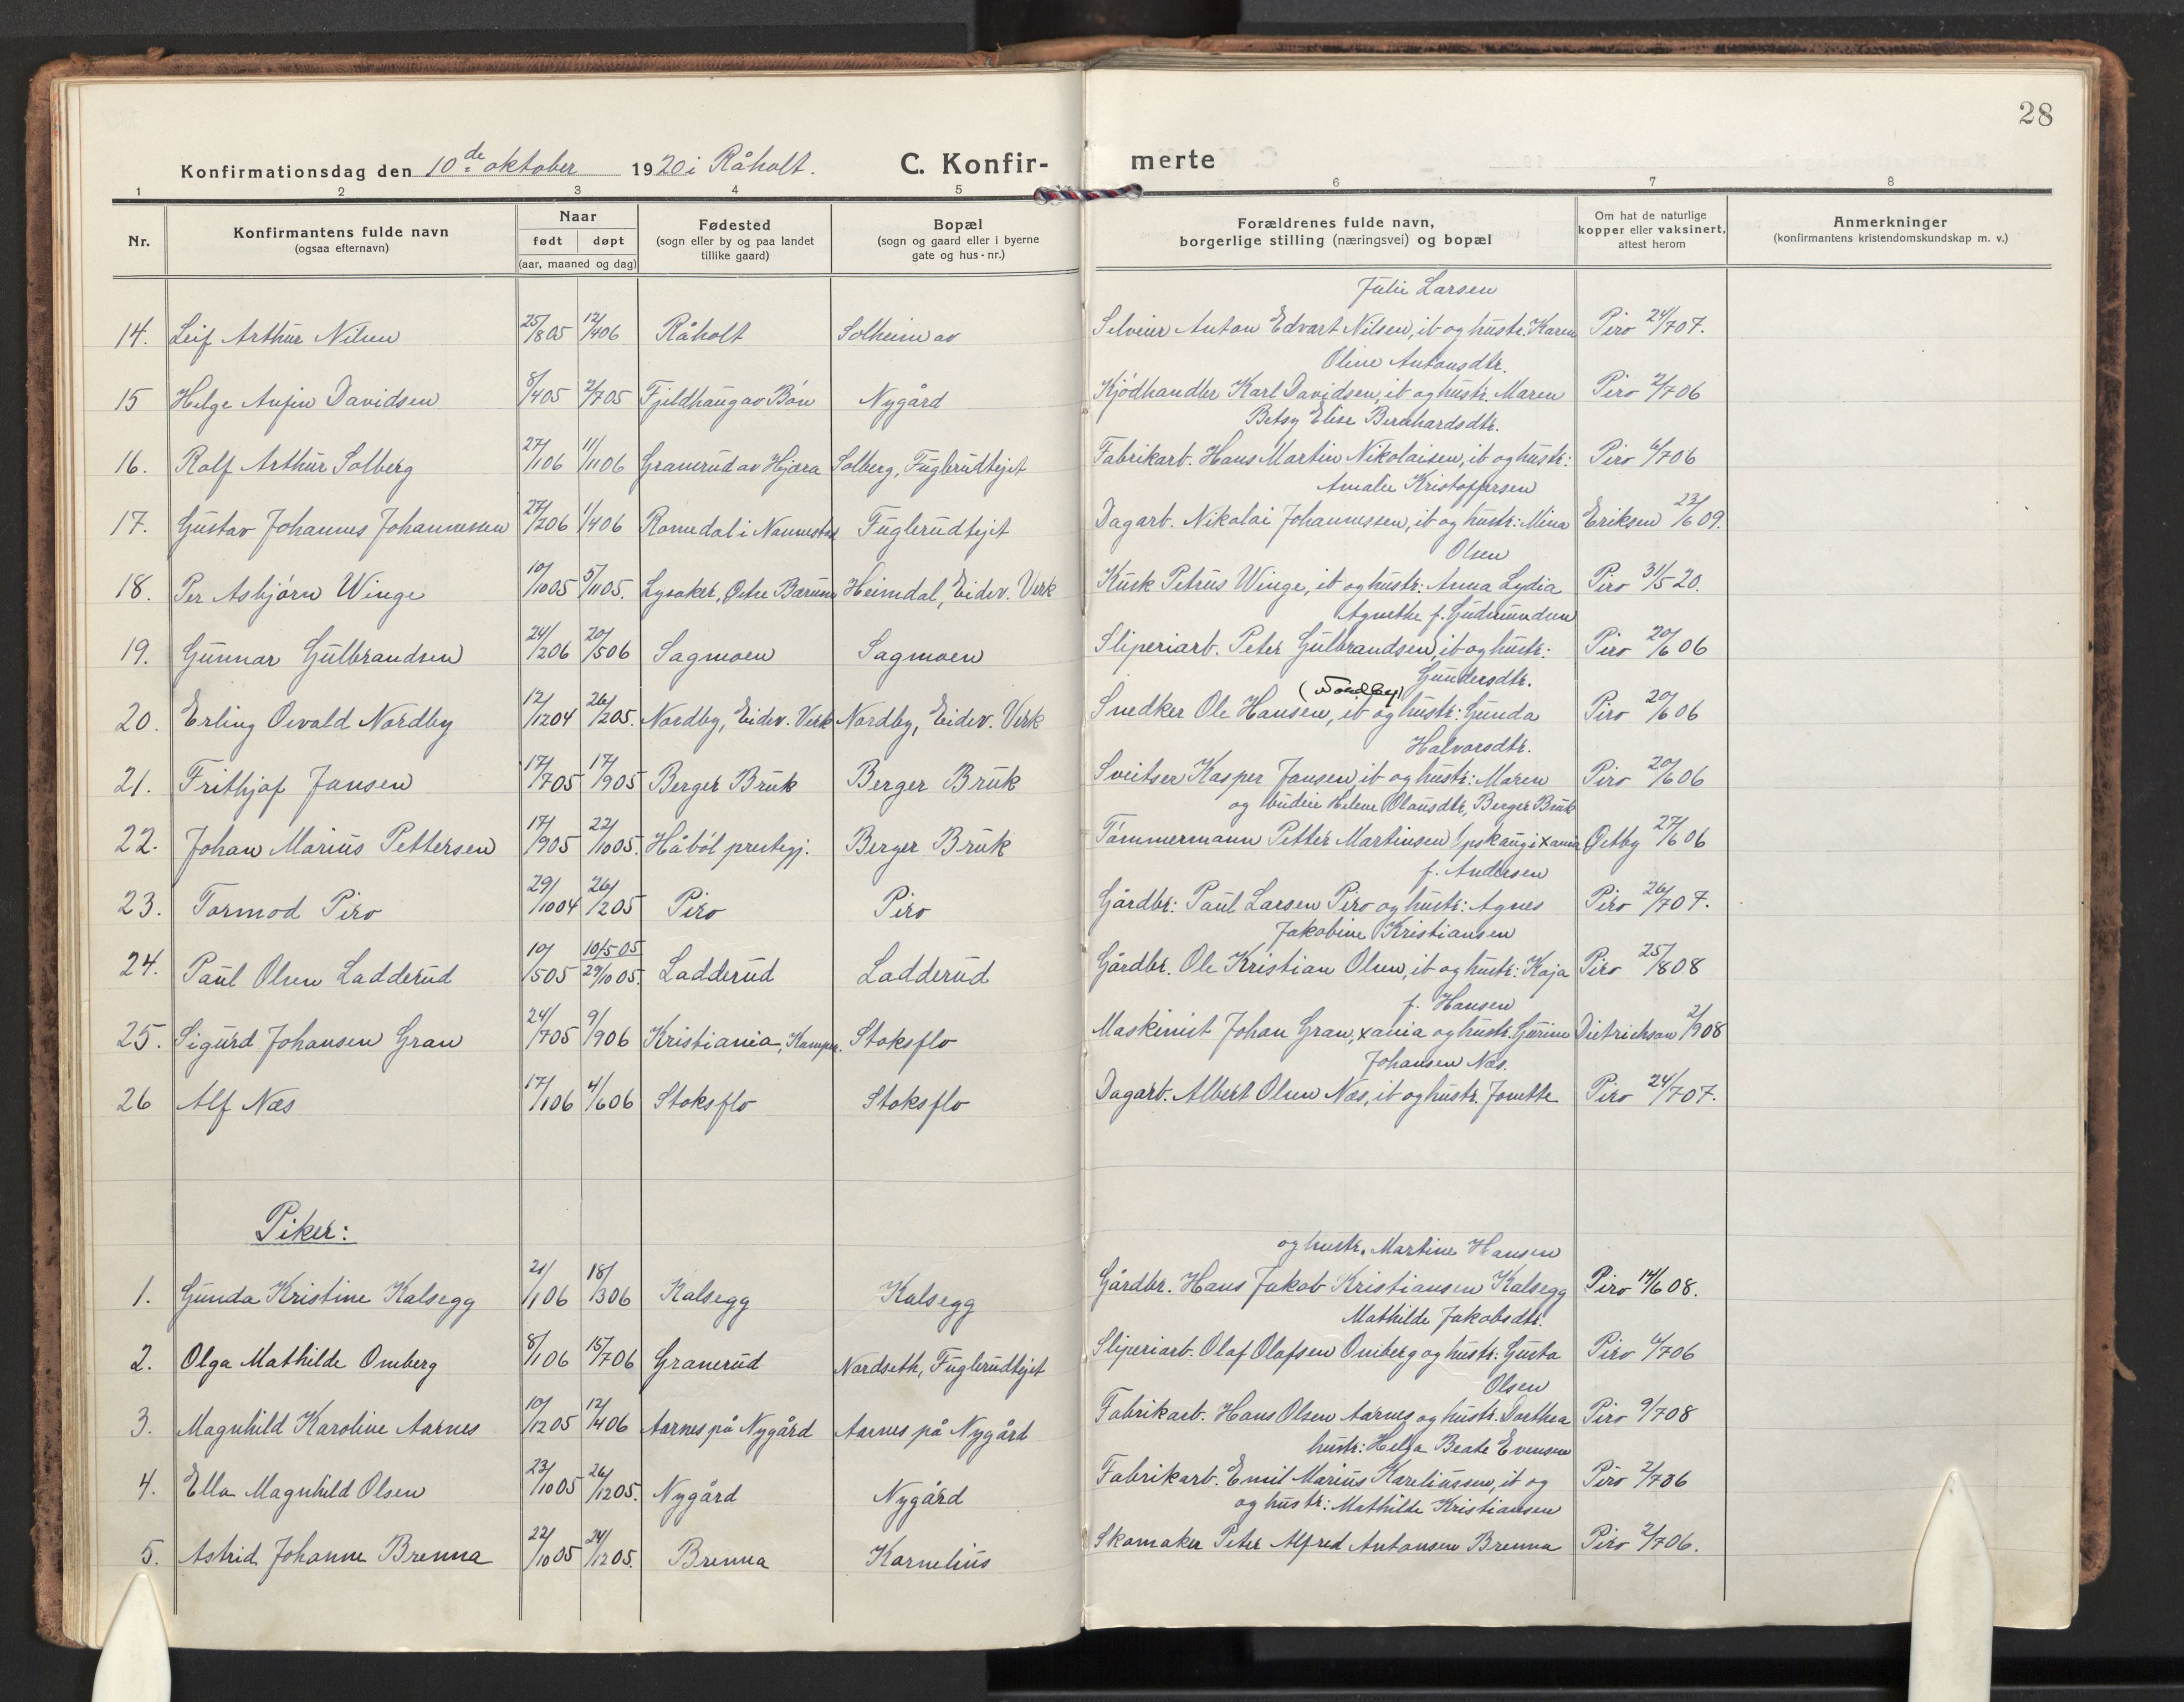 28
Konfirmationsdag den 10de oktober 1920 i Råholt. C. Konfir- merte
1 2 3 4 5 6 7 8
Nr. Konfirmantens fulde navn (ogsaa efternavn) Naar født døpt (aar, maaned og dag) Fødested (sogn eller by og paa landet tillike gaard) Bopæl (sogn og gaard eller i byerne gate og hus-nr.) Forældrenes fulde navn, borgerlige stilling (næringsvei) og bopæl Om hat de naturlige kopper eller vaksinert, attest herom Anmerkninger (konfirmantens kristendomskundskap m. v.)
Julie Larsen
14. Leif Arthur Nilsen 25/805 12/406 Råholt Solheim av Selveier Anton Edvart Nilsen, ib og hustr. Karen Piro 24/707.
Oline Antonsdtr.
15 Helge Anfin Davidsen 8/405 2/705 Fjeldhaug av Bøn Nygård Kjødhandler Karl Davidsen, ib og hustr. Maren Piro 2/706
Betsy Elise Bernhardsdtr.
16. Rolf Arthur Solberg 27/106 11/1106 Granerud av Hjæra Solberg, Fuglerudhejet Fabrikarb. Hans Martin Nikolaisen, ib og hustr: Piro 6/706
Amalie Kristoffersen
17. Gustav Johannes Johannessen 27/206 1/406 Romedal i Nannestad Fuglerudhejet Dagarb. Nikolai Johannessen, ib og hustr: Mina Eriksen 23/609.
Olsen
18. Per Asbjørn Winge 10/1005 5/1105. Lysaker, Østre Bærum Heimdal, Eidsv. Verk Kusk Petrus Winge, ib og hustr: Anna Lydia Piro 31/520.
Agnethe f. Gudmundsen
19. Gunnar Gulbrandsen 24/206 20/506 Sagmoen Sagmoen Sliperiarb. Peter Gulbrandsen, ib og hustr: Piro 20/606
Gundersdtr.
20. Erling Osvald Nordby 12/1204 26/1205. Nordby, Eidsv. Verk Nordby, Eidsv. Verk Snedker Ole Hansen (Nordby), ib og hustr: Gunda Piro 20/606
Halvorsdtr.
21. Frithjof Jansen 17/705 17/905 Berger Bruk Berger Bruk Sveitser Kasper Jansen, ib og hustr: Maren Piro 20/606
og budeie Helene Olausdtr, Berger Bruk
22. Johan Marius Pettersen 17/905 22/1005. Håbøl prestegj. Berger Bruk Tømmermann Petter Martinsen i xania Østby 27/606
f. Andersen
23. Tormod Piro 29/1004 26/1205 Piro Piro Gårdbr: Paul Larsen Piro og hustr: Agnes Piro 26/707.
Jakobine Kristiansen
24. Paul Olsen Ladderud 10/505 10/5-05 29/1005. Ladderud Ladderud Gårdbr. Ole Kristian Olsen, ib og hustr: Kaja Piro 25/808
f. Hansen
25. Sigurd Johansen Gran 24/705 9/906 Kristiania, Kampen. Stoksflo Maskinist Johan Gran, xania og hustr. Gurine Dietrichson 2/908
Johansen Næs.
26 Alf Næs 17/106 4/606 Stoksflo Stoksflo Dagarb. Albert Olsen Næs, ib og hustr. Jonette Piro 24/707.
Piker:
og hustr. Martine Hansen
1. Gunda Kristine Kalsegg 21/106 18/306 Kalsegg Kalsegg Gårdbr. Hans Jakob Kristiansen Kalsegg Piro 14/608.
Mathilde Jakobsdtr.
2. Olga Mathilde Omberg 8/106 15/706 Granerud Nordseth, Fuglerudhejet Sliperiarb. Olaf Olafsen Omberg og hustr: Gusta Piro 6/706
Olsen
3. Magnhild Karoline Aarnes 10/1205 12/406 Aarnes på Nygård Aarnes på Nygård Fabrikarb. Hans Olsen Aarnes og hustr. Dorthea Piro 9/708
hustr: Helga Beate Evensen
4. Ella Magnhild Olsen 23/1005 26/1205. Nygård Nygård Fabrikarb. Emil Marius Kareliussen, ib og Piro 2/706
og hustr: Mathilde Kristiansen
5. Astrid Johanne Brenna 22/1005 24/1205. Brenna Kornelius Skomaker Peter Alfred Antonsen Brenna Piro 2/706.